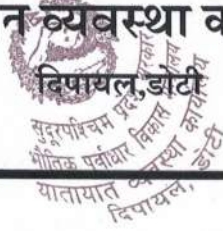 न व्यवस्था क
दिपायल,डोटी
सुदूरपश्चिम प्रदेश सरकार
भौतिक पूर्वाधार विकास
यातायात व्यवस्था कार्यालय
दिपायल, डोटी